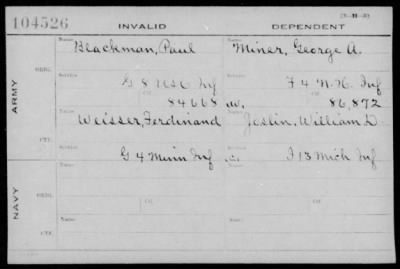 104526 INVALID DEPENDENT
Name Blackman, Paul Name Miner, George A.
ARMY
ORIG.
Service G 8 Service F 4 N.H. Inf
84668 W. 86,872
Name Weisser, Ferdinand Name Joslin, William D.
CTF.
G 4 Minn Inf I 13 Mich Inf
NAVY
ORIG.
Name Name
CTF.